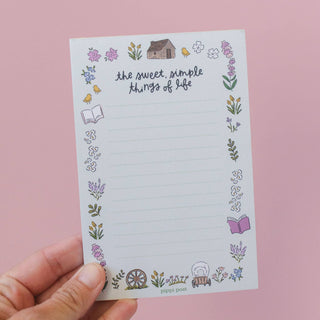 the sweet, simple
things of life
pippi post